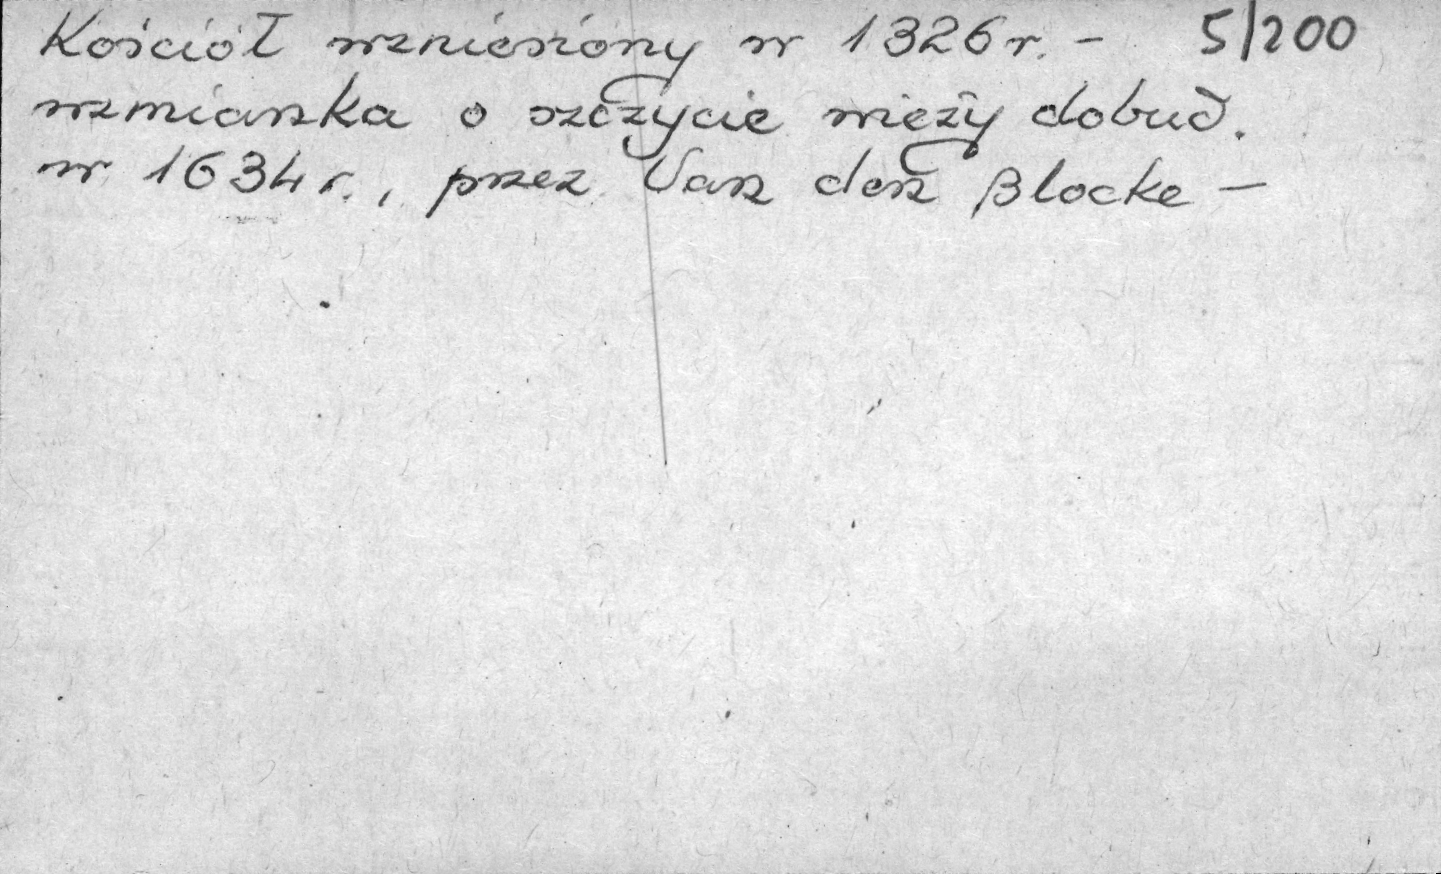 Kościół wzniesiony w 1326 r. - 5/200
wzmianka o szczycie wieży dobud.
w 1634 r., przez Van den Blocke -